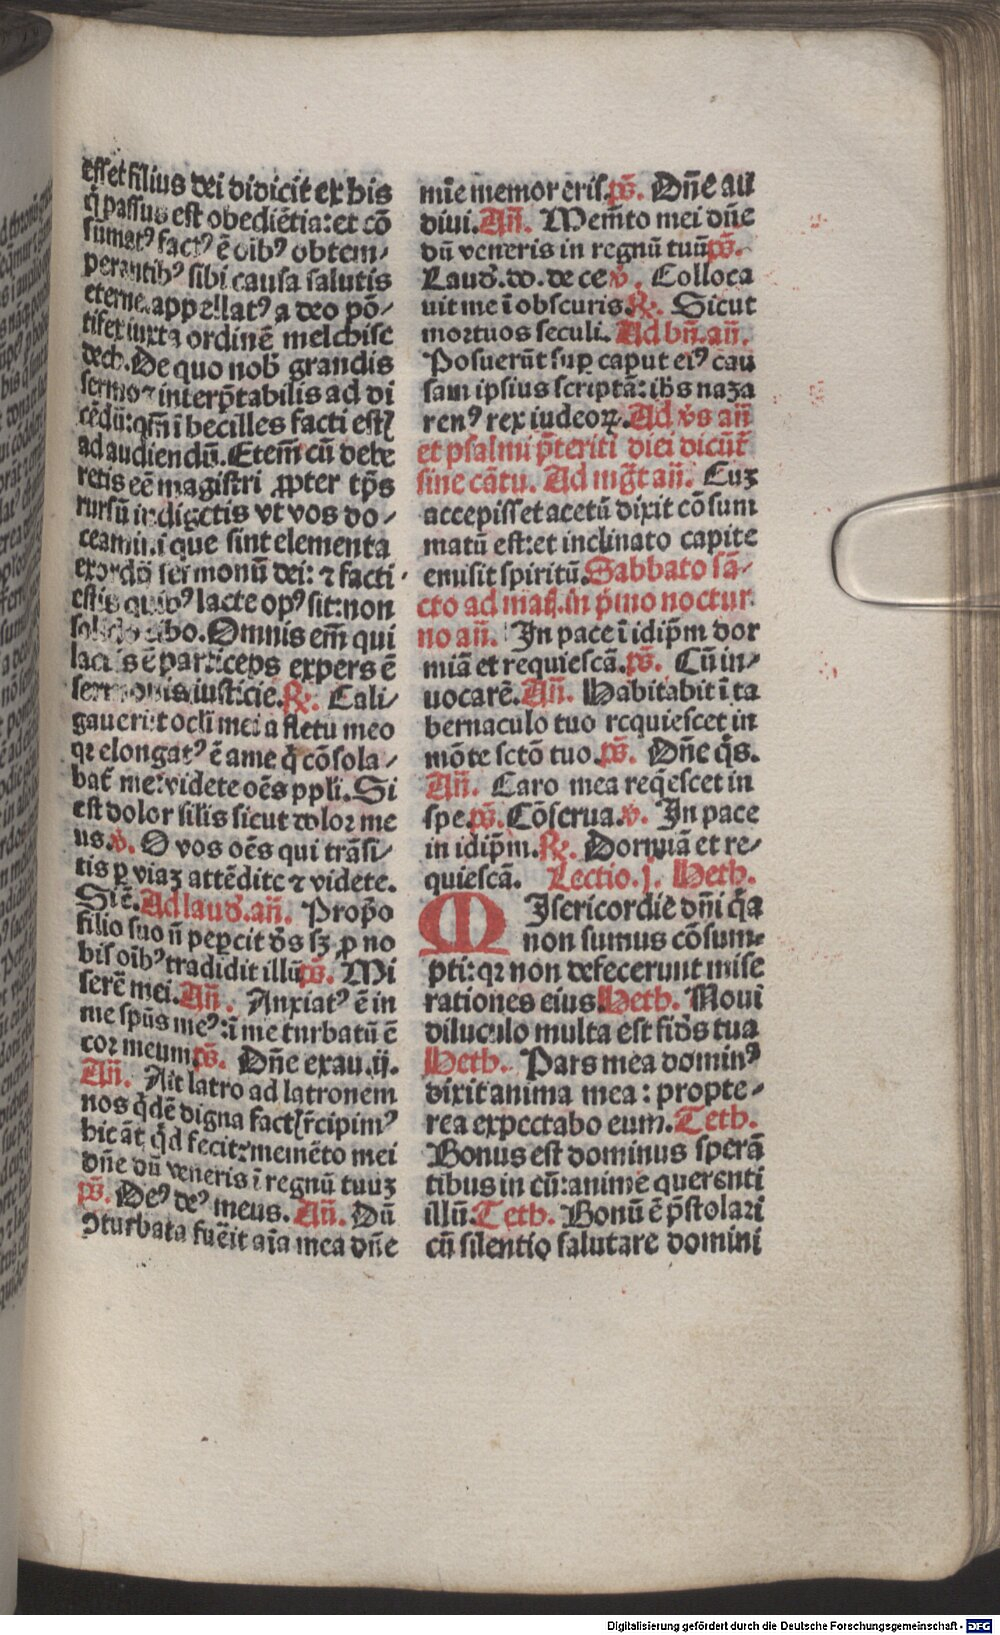 esset filius dei didicit ex his
q̄ passus est obediētia: et cō
sumatꝰ factꝰ ē oībꝰ obtem⸗
perantibꝰ sibi causa salutis
eterne. appellatꝰ a deo pō⸗
tifex iuxta ordinē melchise
dech. De quo nob̄ grandis
sermo ⁊ interp̄tabilis ad di
cēdū: qm̄ ībecilles facti estꝭ
ad audiendū. Etem̄ cū debe
retis eē magistri ꝓpter tp̄s
rursū indigetis vt vos do⸗
ceamini que sint elementa
exordij sermonū dei: ⁊ facti
estis quibꝰ lacte opꝰ sit: non
solido cibo. Omnis em̄ qui
lactis ē particeps expers ē
sermonis iusticie. ℟. Cali⸗
gauerūt oclī mei a fletu meo
qꝛ elongatꝰ ē a me q̄ cōsola⸗
bat̄ me: videte oēs ppli. Si
est dolor silis sicut dolor me
us. ℣. O vos oēs qui trāsi⸗
tis ꝑ viaꝫ attēdite ⁊ videte.
Si ē. Ad laud̄. añ. Prop̄o
filio suo n̄ peꝑcit dṡ sꝫ ꝓ no
bis oībꝰ tradidit illū p̄s. Mi
serē mei. Añ. Anxiatꝰ ē in
me sp̄us meꝰ: ī me turbatū ē
cor meum p̄s. Dn̄e exau. ij.
Añ. Ait latro ad latronem
nos q̇dē digna factꝭ r̄cipimꝰ
hic āt q̇d fecit: memēto mei
dn̄e dū veneris ī regnū tuuꝫ
p̄s. Deꝰ deꝰ meus. Añ. Dū
ꝯturbata fuēit aīa mea dn̄e
mīe memor eris. p̄s. Dn̄e au
diui. Añ. Memēto mei dn̄e
dū veneris in regnū tuū p̄s.
Laud̄. do. de ce ℣. Colloca
uit me ī obscuris. ℟. Sicut
mortuos seculi. Ad bn̄. añ.
Posuerūt suꝑ caput eiꝰ cau
sam ipsius scriptā: ihs naza
renꝰ rex iudeoꝝ. Ad v̄s añ
et psalmi p̄teriti diei dicūt̄
sine cātu. Ad mg̃t añ. Cuꝫ
accepisset acetū dixit cōsum
matū est: et inclinato capite
emisit spiritū. Sabbato sā⸗
cto ad matꝭ. in p̄mo noctur
no añ. In pace ī idip̄m dor
miā et requiescā. p̄s. Cū in⸗
uocarē. Añ. Habitabit ī ta
bernaculo tuo requiescet in
mōte sctō tuo. p̄s. Dn̄e q̇s.
Añ. Caro mea reqͥescet in
spe. p̄s. Cōserua. ℣. In pace
in idip̄m. ℟. Dormiā et re⸗
quiescā. Lectio. j. Heth.
MIsericordie dn̄i q̄a
non sumus cōsum⸗
pti: qꝛ non defecerunt mise
rationes eius Heth. Noui
diluculo multa est fid̄s tua
Heth. Pars mea dominꝰ
dixit anima mea: propte⸗
rea expectabo eum. Teth.
Bonus est dominus sperā
tibus in eū: anime querenti
illū. Teth. Bonū ē p̄stolari
cū silentio salutare domini
Digitalisierung gefördert durch die Deutsche Forschungsgemeinschaft - DFG